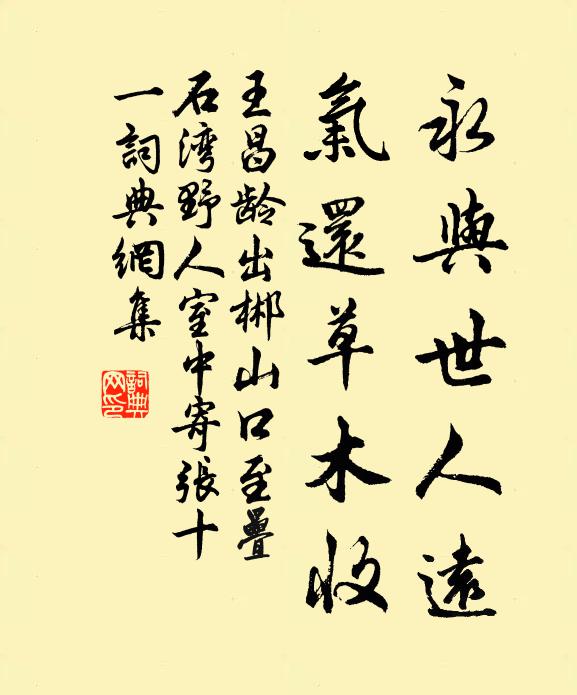 永與世人遠
氣還草木收
王昌龄出郴山口至疊
石湾野人室中寄張十
一詞典網集
詞典网印